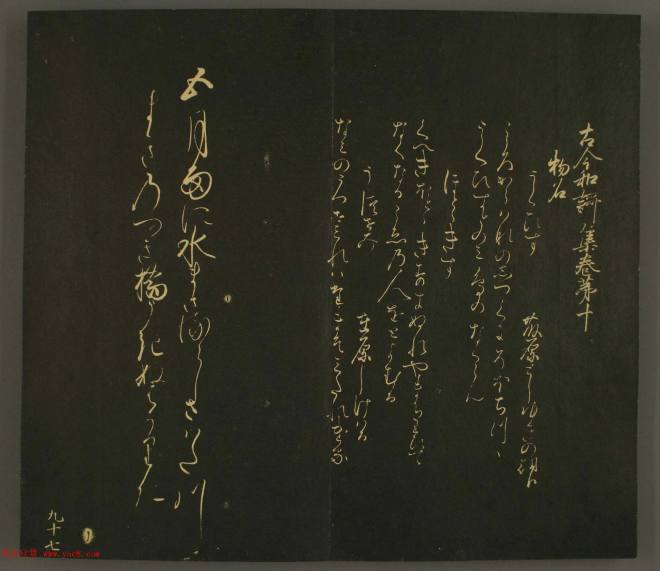 古今和謌集巻第十
物名
うくひす　藤原としゆきの朝臣
こゝろから花のしつくにそほちつゝ
うくひすとのみ鳥のなくらん
ほとゝきす
くへきほとときすきぬれやまちわひて
なくなるこゑの人をとよむる
うつせみ　在原しける
なみのうつせみれはたまそみたれける
五月雨に水まさるらしさはた川
まきのつき橋うきぬはかりに
九十七
www.yac8.com